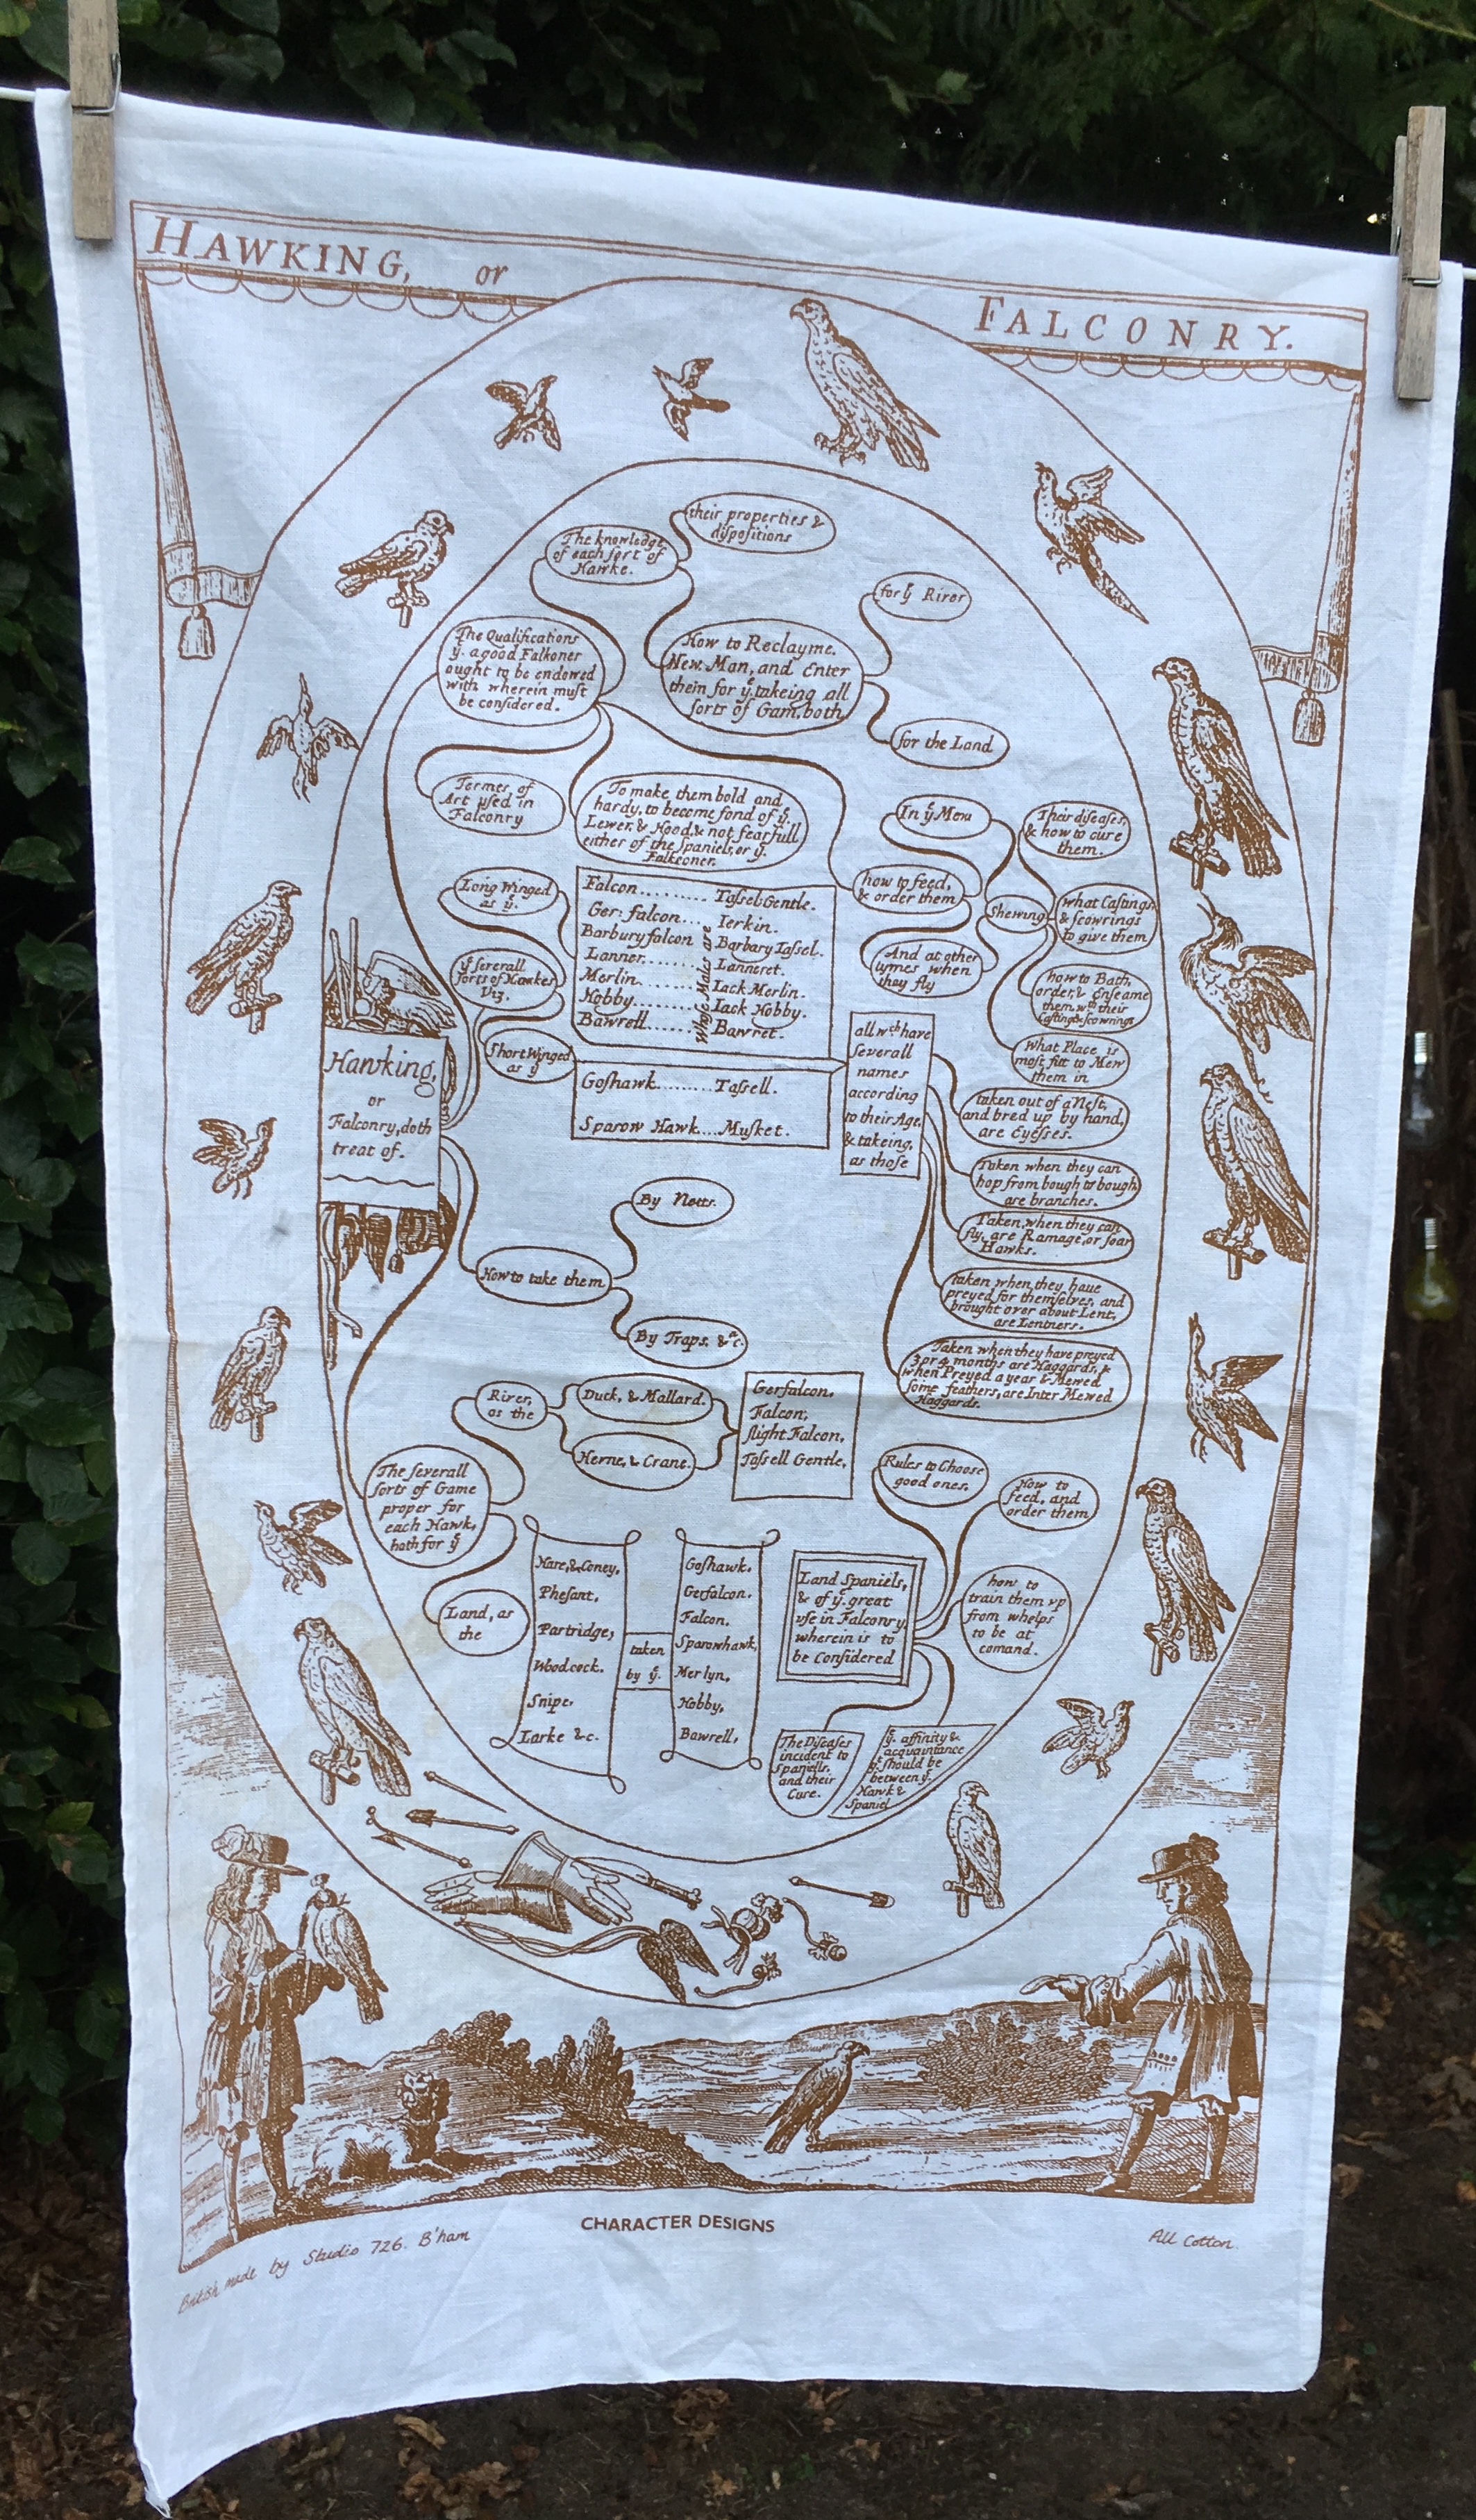 HAWKING, or
FALCONRY.
their properties &
diſpoſitions
The knowledge
of each ſort of
Hawke.
for yͤ River
The Qualifications
yͭ. a good Falkoner
ought to be endowed
with wherein muſt
be conſidered.
How to Reclayme.
Hew. Man, and Enter
them for yͤ. takeing all
ſorts of Gam, both
for the Land
Termes of
Art uſed in
Falconry
To make them bold and
hardy, to become fond of yͤ.
Lewer. & Hood, & not fearfull
either of the Spaniels, or yͤ.
Falkconer.
In yͤ Mew
Their diſeaſes,
& how to cure
them.
how to feed,
& order them
Shewing
what Caſtings
& ſcowrings
to give them
And at other
tymes when
they fly
how to Bath,
order, & Enſeame
them, wͭͪ their
Caſting & ſcowrings
What Place is
moſt fitt to Mew
them in
Long Winged
as yͤ.
yͤ ſeverall
ſorts of Hawkes
Viz.
Short Winged
as yͤ
Falcon.......... Taſsel Gentle.
Ger: falcon.... Ierkin.
Barbury falcon Barbary Taſsel.
Lanner......... Lanneret.
Merlin......... Iack Merlin.
Hobby.......... Iack Hobby.
Bawrell...... Bawret.
Whoſe Males are
Goſhawk......... Taſsell.
Sparow Hawk.... Muſket.
Hawking,
or
Falconry, doth
treat of.
all wͨͪ have
ſeverall
names
according
to their Age,
& takeing,
as thoſe
taken out of a Neſt,
and bred up by hand,
are Eyeſses.
Taken when they can
hop from bough to bough
are branches.
Taken, when they can
fly, are Ramage, or ſoar
Hawks.
taken when they have
preyed for themſelves, and
brought over about Lent,
are Lentners.
Taken when they have preyed
3 or 4 months are Haggards, &
when Preyed a year & Mewed
ſome feathers, are Inter Mewed
Haggards.
By Netts.
How to take them
By Traps. &ͣc.
River,
as the
Duck, & Mallard.
Herne, & Crane.
Gerfalcon,
Falcon,
ſlight Falcon,
Taſsell Gentle,
The ſeverall
ſorts of Game
proper for
each Hawk,
both for yͤ
Land, as
the
Hare, & Coney,
Pheſant,
Partridge,
Woodcock.
Snipe,
Larke &c.
taken
by yͤ.
Goſhawk,
Gerfalcon.
Falcon.
Sparowhawk,
Merlyn,
Hobby,
Bawrell,
Rules to Chooſe
good ones,
How to
feed, and
order them
Land Spaniels,
& of yͤ. great
uſe in Falconry.
wherein is to
be Conſidered
how to
train them up
from whelps
to be at
comand.
The Diſeaſes
incident to
Spaniells.
and their
Cure.
yͤ. affinity &
acquaintance
yͭ. ſhould be
between yͤ.
Hawk &
Spaniel
CHARACTER DESIGNS
British made by Studio 726. B'ham
All Cotton.